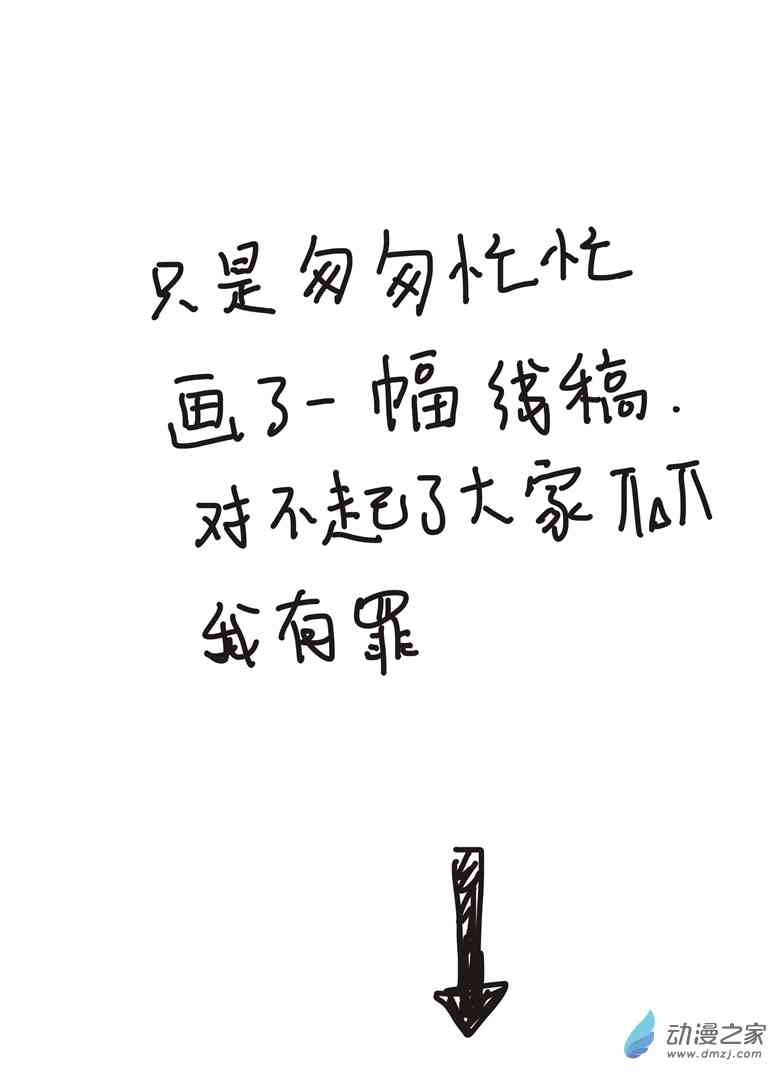 只是匆匆忙忙
画了一幅线稿.
对不起了大家 TT△TT
我有罪
动漫之家
www.dmzj.com